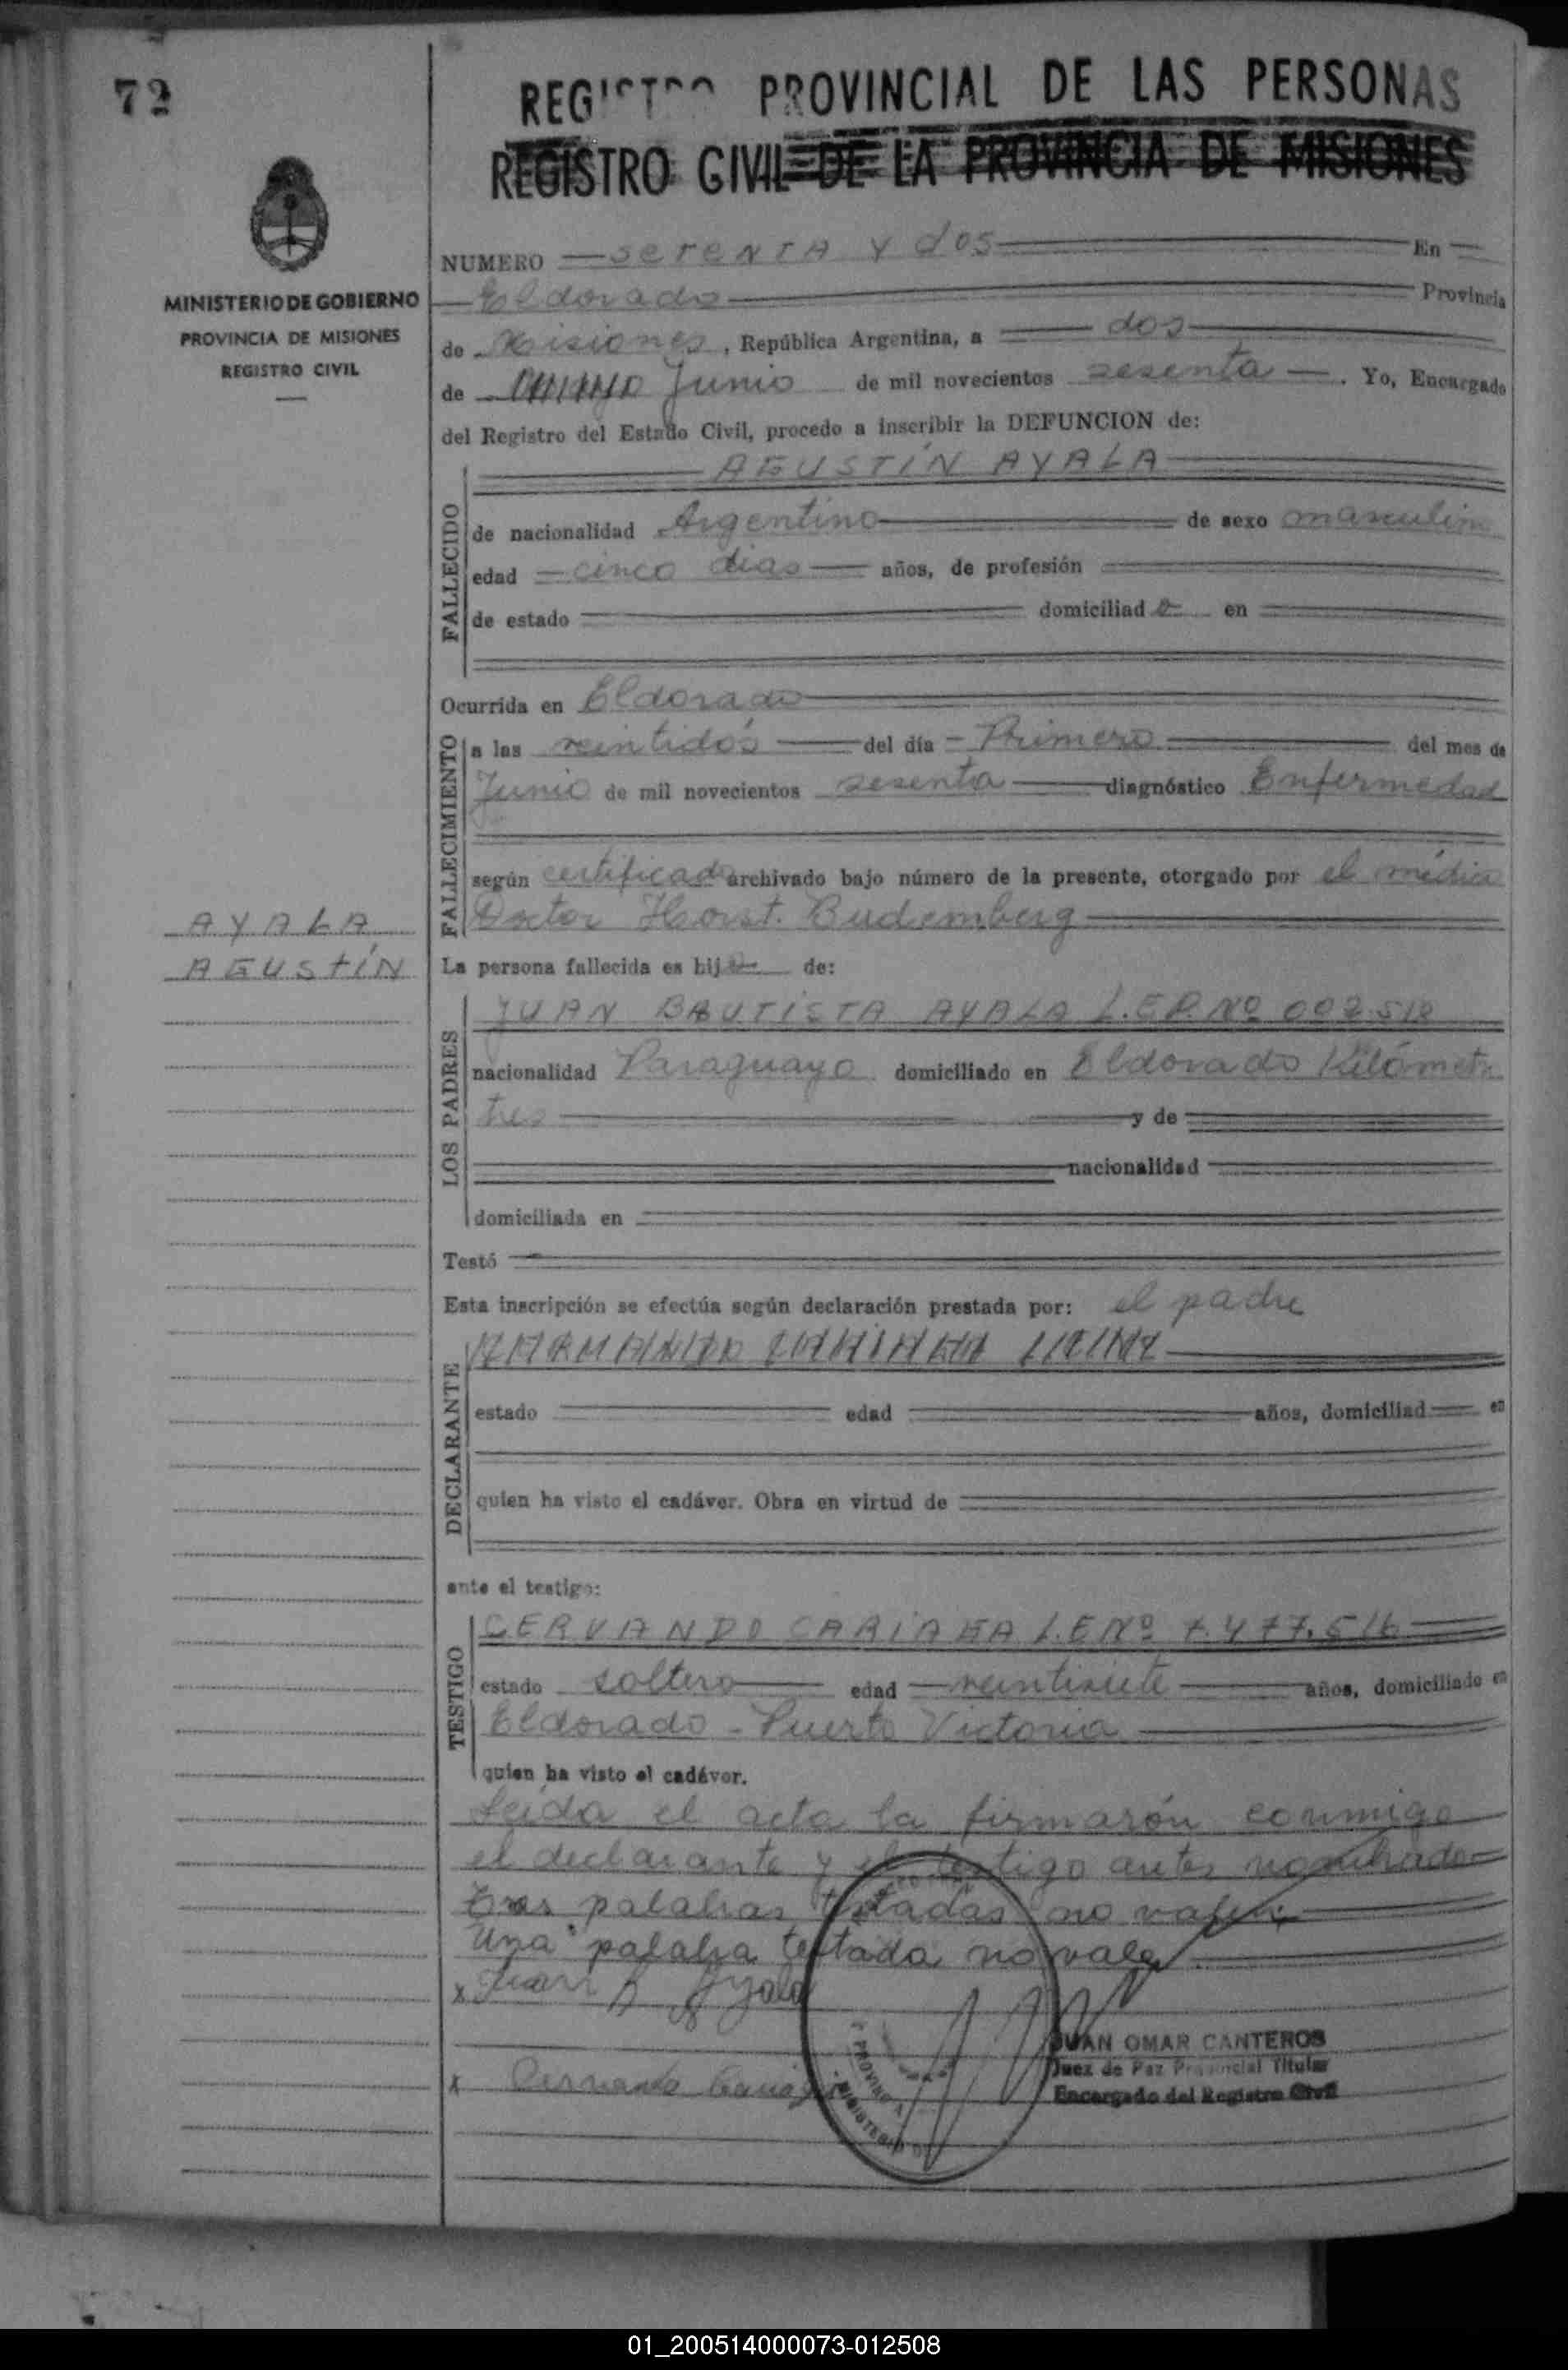 72
REGISTRO PROVINCIAL DE LAS PERSONAS
REGISTRO CIVIL DE LA PROVINCIA DE MISIONES
MINISTERIO DE GOBIERNO
PROVINCIA DE MISIONES
REGISTRO CIVIL
NUMERO setenta y dos En
Eldorado Provincia
de Misiones, República Argentina, a dos
de Junio de mil novecientos sesenta. Yo, Encargado
del Registro del Estado Civil, procedo a inscribir la DEFUNCION de:
FALLECIDO
AGUSTÍN AYALA
de nacionalidad Argentino de sexo masculino
edad cinco dias años, de profesión
de estado domiciliado en
Ocurrida en Eldorado
FALLECIMIENTO
a las veintidós del día Primero del mes de
Junio de mil novecientos sesenta diagnóstico Enfermedad
según certificado archivado bajo número de la presente, otorgado por el médico
Doctor Horst. Budemberg
AYALA
AGUSTÍN
La persona fallecida es hijo de:
LOS PADRES
JUAN BAUTISTA AYALA L.E.P. Nº
nacionalidad Paraguayo domiciliado en Eldorado Kilómetr
tres y de
nacionalidad
domiciliada en
Testó
Esta inscripción se efectúa según declaración prestada por: el padre
DECLARANTE
estado edad años, domiciliad en
quien ha visto el cadáver. Obra en virtud de
ante el testigo:
TESTIGO
CERVANDO CARIAGA L.E Nº 7.477.516
estado soltero edad veintisiete años, domiciliado en
Eldorado - Puerto Victoria
quien ha visto el cadáver.
Leída el acta la firmarón conmigo
el declarante y el testigo antes nombrado
Tres palabras testadas no valen
Una palabra testada no vale
x Juan B Ayala
x Cervando Cariaga
JUAN OMAR CANTEROS
Juez de Paz Provincial Titular
Encargado del Registro Civil
01_200514000073-012508